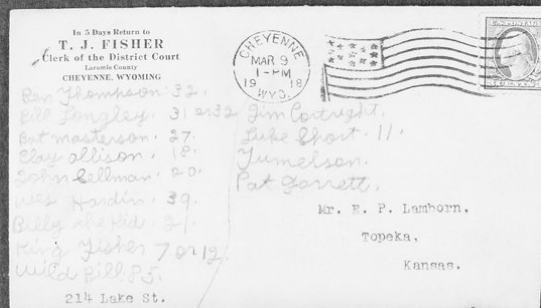 In 5 Days Return to
T. J. FISHER
Clerk of the District Court
Laramie County
CHEYENNE, WYOMING
CHEYENNE
MAR 9
1-PM
1918
WYO.
Ben Thompson. 32.
Bill Longley. 31 or 32
Bat masterson. 27.
Clay allison. 18.
John Sellman. 20.
Wes Hardin. 39.
Billy the Kid. 21.
King Fisher 7 or 12.
Wild Bill 85.
Jim Cortright.
Luke Short. 11.
Tumelson.
Pat Garrett.
Mr. E. P. Lamborn,
Topeka,
Kansas.
214 Lake St.